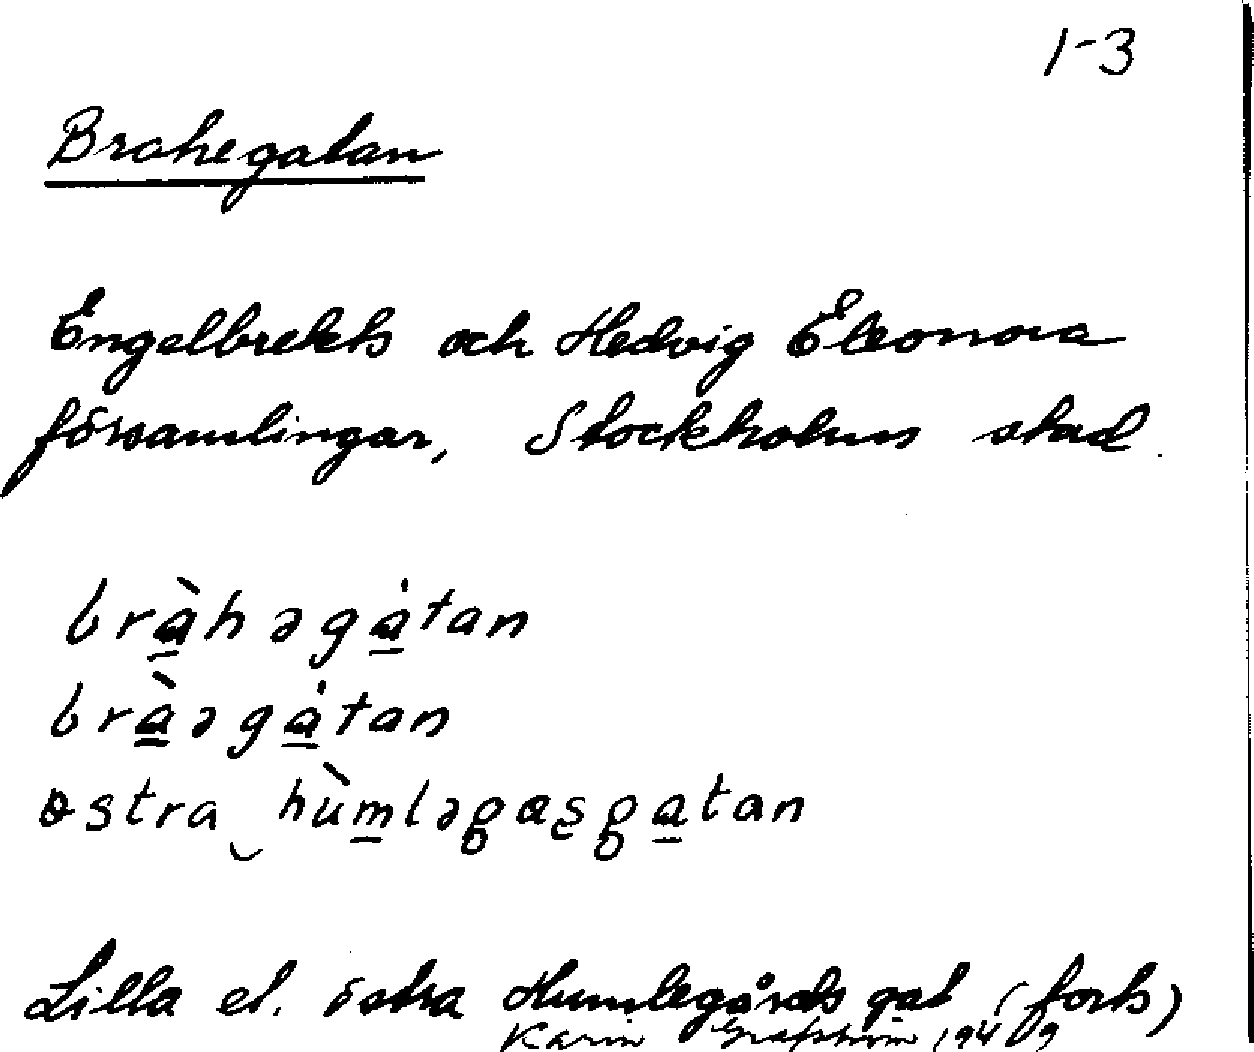 1-3
Brahegatan
Engelbrekts och Hedvig Eleonora
församlingar, Stockholms stad.
bràhəgátan
bràəgátan
østra hùmləgaʂgatan
Lilla el. östra Humlegårds gat (forts)
Karin 1949